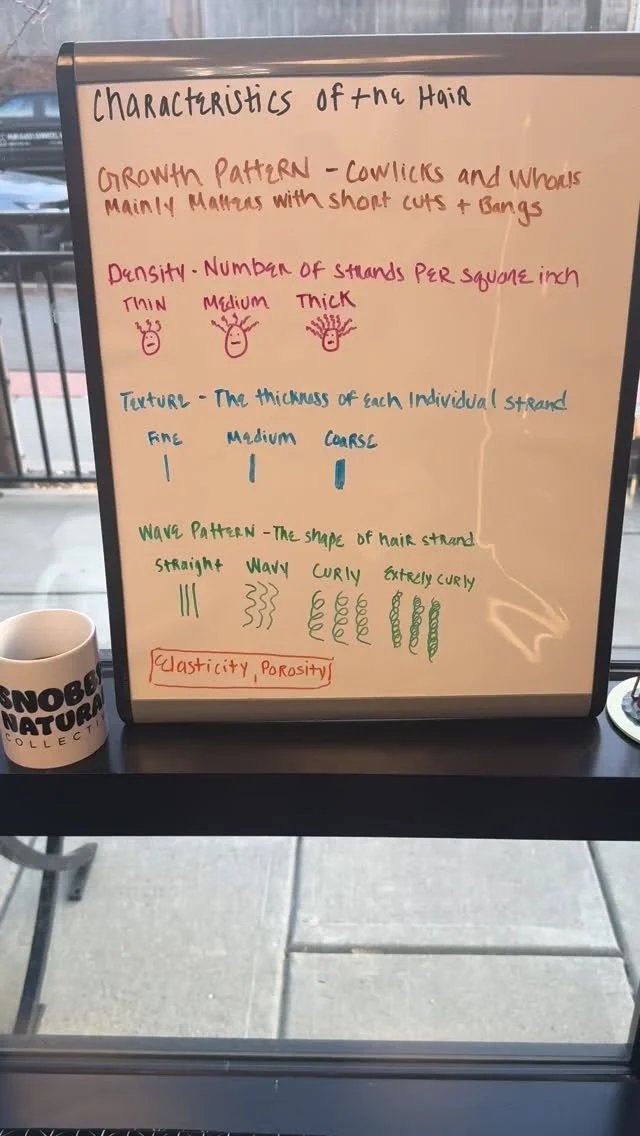 Characteristics of the Hair
Growth Pattern - Cowlicks and Whorls
Mainly Matters with short cuts + Bangs
Density - Number of strands per square inch
Thin Medium Thick
Texture - The thickness of each individual strand
Fine Medium Coarse
Wave Pattern - The shape of hair strand
Straight Wavy Curly Extrely curly
Elasticity, Porosity
SNOBBY
NATURA
COLLECTIV